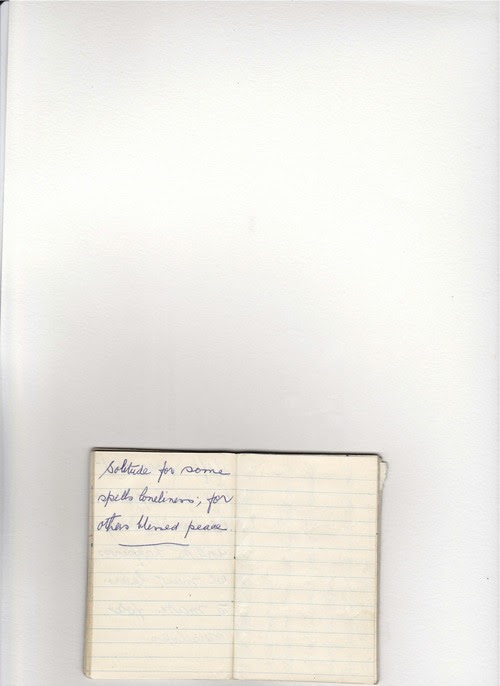 Solitude for some
spells loneliness; for
others blessed peace